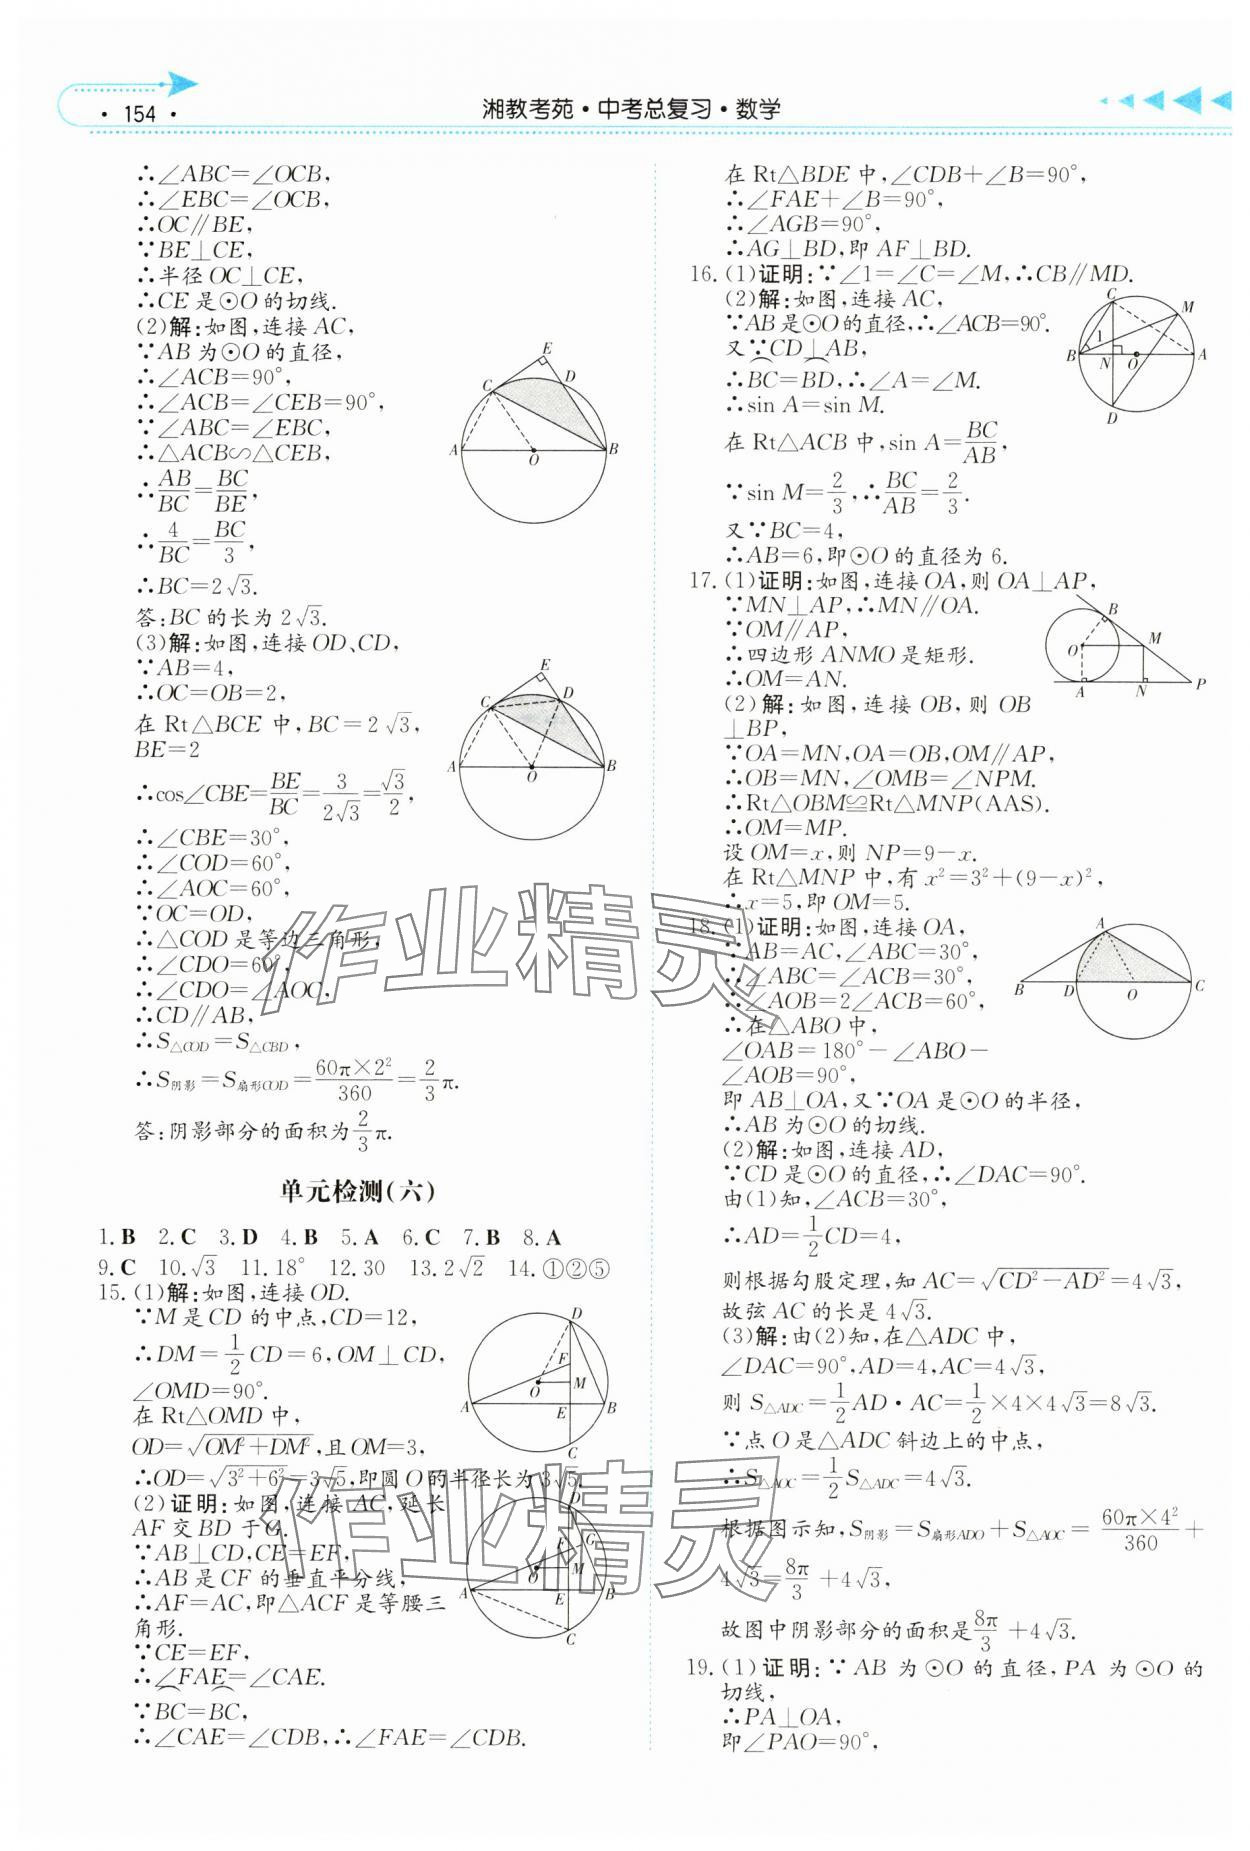 · 154 ·
湘教考苑·中考总复习·数学
∴∠ABC=∠OCB,
∴∠EBC=∠OCB,
∴OC∥BE,
∵BE⊥CE,
∴半径OC⊥CE,
∴CE是⊙O的切线.
(2)解:如图,连接AC,
∵AB为⊙O的直径,
∴∠ACB=90°,
∴∠ACB=∠CEB=90°,
∵∠ABC=∠EBC,
∴△ACB∽△CEB,
∴AB/BC=BC/BE,
∴4/BC=BC/3,
∴BC=2√3.
答:BC的长为2√3.
(3)解:如图,连接OD、CD,
∵AB=4,
∴OC=OB=2,
在Rt△BCE中,BC=2√3,
BE=2
∴cos∠CBE=BE/BC=3/2√3=√3/2,
∴∠CBE=30°,
∴∠COD=60°,
∴∠AOC=60°,
∵OC=OD,
∴△COD是等边三角形,
∴∠CDO=60°,
∴∠CDO=∠AOC,
∴CD∥AB,
∴S△COD=S△CBD,
∴S阴影=S扇形COD=60π×2²/360=2/3π.
答:阴影部分的面积为2/3π.
单元检测(六)
1.B 2.C 3.D 4.B 5.A 6.C 7.B 8.A
9.C 10.√3 11.18° 12.30 13.2√2 14.①②⑤
15.(1)解:如图,连接OD.
∵M是CD的中点,CD=12,
∴DM=1/2CD=6,OM⊥CD,
∠OMD=90°.
在Rt△OMD中,
OD=√(OM²+DM²),且OM=3,
∴OD=√(3²+6²)=3√5,即圆O的半径长为3√5.
(2)证明:如图,连接AC,延长
AF交BD于G.
∵AB⊥CD,CE=EF,
∴AB是CF的垂直平分线,
∴AF=AC,即△ACF是等腰三
角形.
∵CE=EF,
∴∠FAE=∠CAE.
∵BC=BC,
∴∠CAE=∠CDB,∴∠FAE=∠CDB.
在Rt△BDE中,∠CDB+∠B=90°,
∴∠FAE+∠B=90°,
∴∠AGB=90°,
∴AG⊥BD,即AF⊥BD.
16.(1)证明:∵∠1=∠C=∠M,∴CB∥MD.
(2)解:如图,连接AC,
∵AB是⊙O的直径,∴∠ACB=90°.
又∵CD⊥AB,
∴BC=BD,∴∠A=∠M.
∴sin A=sin M.
在Rt△ACB中,sin A=BC/AB,
∵sin M=2/3,∴BC/AB=2/3.
又∵BC=4,
∴AB=6,即⊙O的直径为6.
17.(1)证明:如图,连接OA,则OA⊥AP,
∵MN⊥AP,∴MN∥OA.
∵OM∥AP,
∴四边形ANMO是矩形.
∴OM=AN.
(2)解:如图,连接OB,则OB
⊥BP,
∵OA=MN,OA=OB,OM∥AP,
∴OB=MN,∠OMB=∠NPM.
∴Rt△OBM≌Rt△MNP(AAS).
∴OM=MP.
设OM=x,则NP=9-x.
在Rt△MNP中,有x²=3²+(9-x)²,
∴x=5,即OM=5.
18.(1)证明:如图,连接OA,
∵AB=AC,∠ABC=30°,
∴∠ABC=∠ACB=30°,
∴∠AOB=2∠ACB=60°,
∴在△ABO中,
∠OAB=180°-∠ABO-
∠AOB=90°,
即AB⊥OA,又∵OA是⊙O的半径,
∴AB为⊙O的切线.
(2)解:如图,连接AD,
∵CD是⊙O的直径,∴∠DAC=90°.
由(1)知,∠ACB=30°,
∴AD=1/2CD=4,
则根据勾股定理,知AC=√(CD²-AD²)=4√3,
故弦AC的长是4√3.
(3)解:由(2)知,在△ADC中,
∠DAC=90°,AD=4,AC=4√3,
则S△ADC=1/2AD·AC=1/2×4×4√3=8√3.
∵点O是△ADC斜边上的中点,
∴S△AOC=1/2S△ADC=4√3.
根据图示知,S阴影=S扇形ADO+S△AOC=60π×4²/360+
4√3=8π/3+4√3,
故图中阴影部分的面积是8π/3+4√3.
19.(1)证明:∵AB为⊙O的直径,PA为⊙O的
切线,
∴PA⊥OA,
即∠PAO=90°,
作业精灵
作业精灵